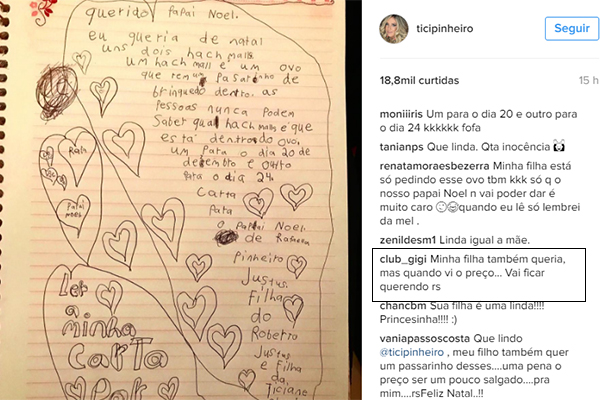 querido PaPai Noel.
eu queria de natal
uns dois hach malls
um hach mall é um ovo
que tem um Pasarinho de
brinquedo dentro, as
Pessoas nunca Podem
Saber qual hach malls é que
está dentro do ovo,
um Para o dia 20 de
dezembro e outro
Para o dia 24.
Carta
Para
o PaPai Noel.
de Rafaella
Pinheiro
Justus.
Filha
do
Roberto
Justus
e Filha
da
Ticiane
Rafa
Papai
noel
Ler
a
minha
CARTA
Por
ticipinheiro
Seguir
18,8mil curtidas
15 h
moniiiris Um para o dia 20 e outro para
o dia 24 kkkkkk fofa
tanianps Que linda. Qta inocência 🙌
renatamoraesbezerra Minha filha está
só pedindo esse ovo tbm kkk só q o
nosso papai Noel n vai poder dar é
muito caro 😉😂quando eu lê só lembrei
da mel .
zenildesm1 Linda igual a mãe.
club_gigi Minha filha também queria,
mas quando vi o preço... Vai ficar
querendo rs
chancbm Sua filha é uma linda!!!!
Princesinha!!!! :)
vaniapassoscosta Que lindo
@ticipinheiro , meu filho também quer
um passarinho desses....uma pena o
preço ser um pouco salgado....pra
mim....rsFeliz Natal..!!